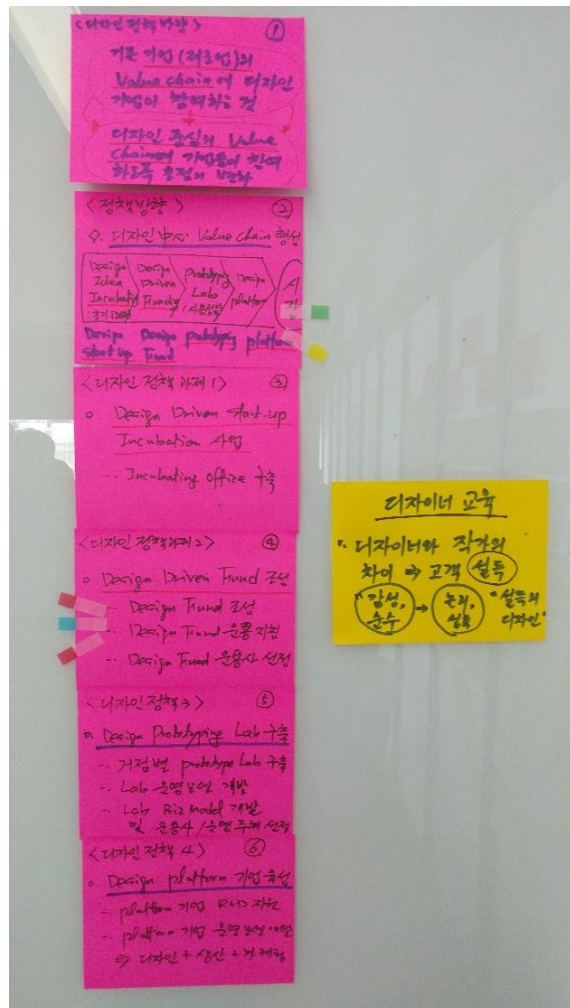 <디자인 정책 방향> ①
기존 기업(제조업)의
Value chain에 디자인
기업이 참여하는 것
디자인 중심의 Value
chain에 기업들이 참여
하도록 관점의 변화
<정책방향> ②
디자인 中心 Value chain 형성
Design Idea Incubating
Design Driven Funding
Prototyping Lab
Design platform
Design Design prototyping platform
start up Fund
<디자인 정책 과제 1> ③
o Design Driven Start-up
Incubation 사업
- Incubating office 구축
<디자인 정책과제 2> ④
o Design Driven Fund 조성
- Design Fund 조성
- Design Fund 운용지침
- Design Fund 운용사 선정
<디자인 정책 3> ⑤
o Design Prototyping Lab 구축
- 거점별 prototype Lab 구축
- Lab 운영모델 개발
- Lab Biz Model 개발
및 운용사/운영주체 선정
<디자인 정책 4> ⑥
o Design platform 기업 육성
- platform 기업 R&D 지원
- platform 기업 운영모델
⇒ 디자인 + 생산 +
디자이너 교육
디자이너와 작가의
차이 ⇒ 고객 설득
"감성, 순수 → 논리, 설득 "설득의 디자인"